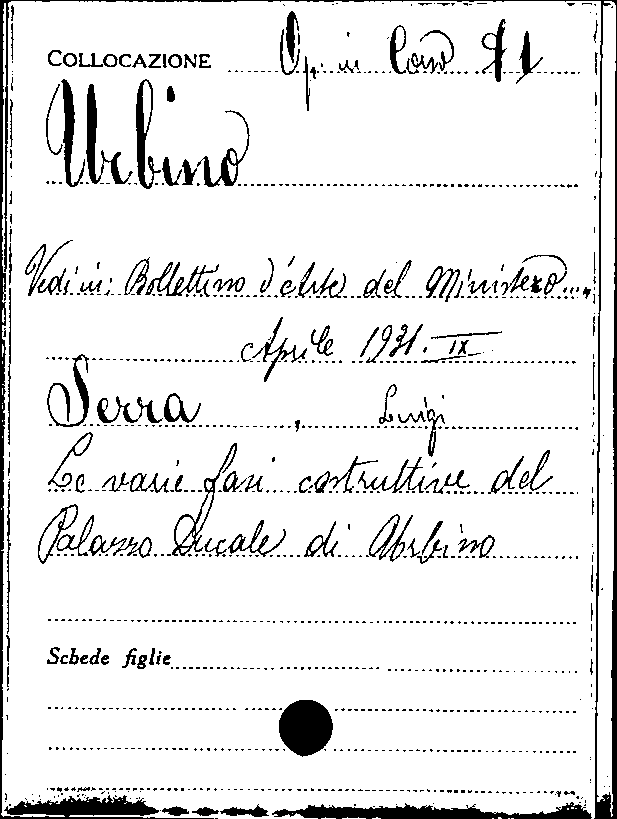 COLLOCAZIONE Op. in Cons
Urbino
Vedi in: Bollettino d'Arte del Ministero...,
Aprile 1931. IX
Serra , Luigi
Le varie fasi costruttive del
Palazzo Ducale di Urbino
Schede figlie